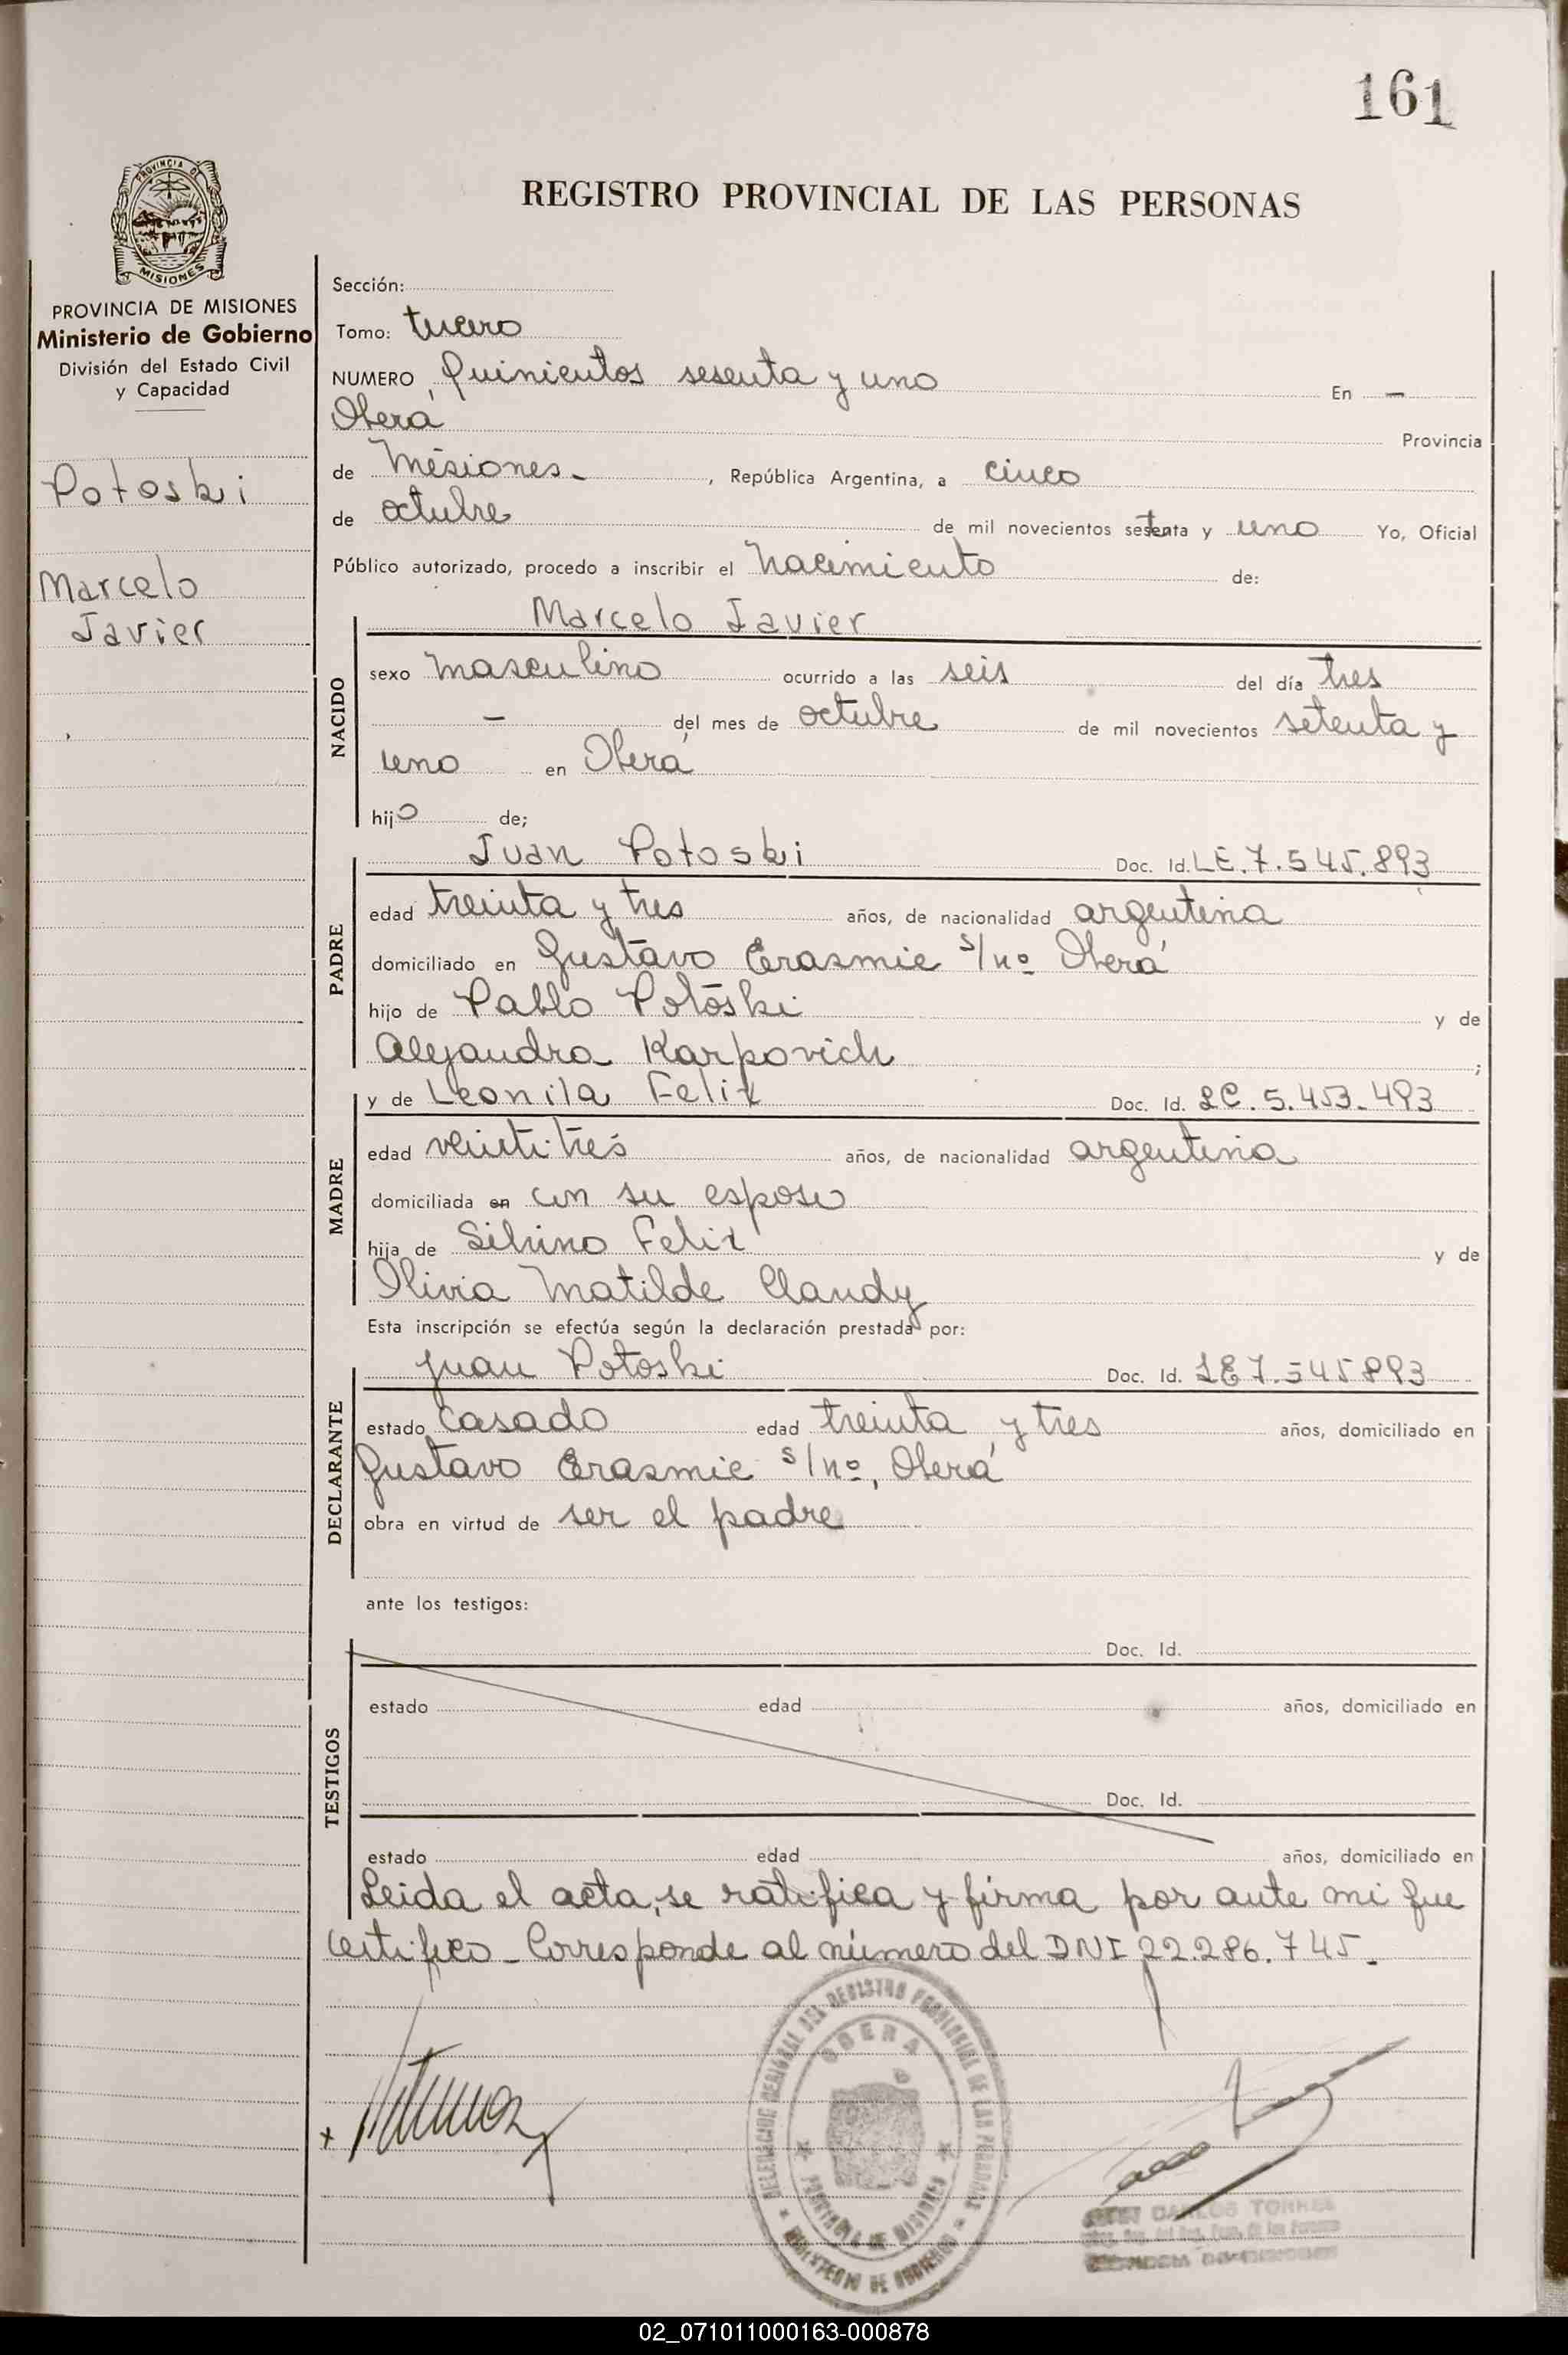 161
PROVINCIA DE
MISIONES
REGISTRO PROVINCIAL DE LAS PERSONAS
PROVINCIA DE MISIONES
Ministerio de Gobierno
División del Estado Civil
y Capacidad
Potoski
Marcelo
Javier
Sección:
Tomo: tercero
NUMERO Quinientos sesenta y uno En —
Oberá Provincia
de Misiones - , República Argentina, a cinco
de octubre de mil novecientos setenta y uno Yo, Oficial
Público autorizado, procedo a inscribir el nacimiento de:
Marcelo Javier
NACIDO
sexo masculino ocurrido a las seis del día tres
— del mes de octubre de mil novecientos setenta y
uno en Oberá
hijo de;
Juan Potoski Doc. Id. LE. 7.545.893
PADRE
edad treinta y tres años, de nacionalidad argentina
domiciliado en Gustavo Erasmie s/nº Oberá
hijo de Pablo Potoski y de
Alejandra Karpovich ;
y de Leonila Felix Doc. Id. LC. 5.453.493
MADRE
edad veintitrés años, de nacionalidad argentina
domiciliada en con su esposo
hija de Silvino Felix y de
Olivia Matilde Claudy
Esta inscripción se efectúa según la declaración prestada por:
Juan Potoski Doc. Id. LE 7.545893
DECLARANTE
estado casado edad treinta y tres años, domiciliado en
Gustavo Erasmie s/nº, Oberá
obra en virtud de ser el padre
ante los testigos:
Doc. Id.
TESTIGOS
estado edad años, domiciliado en
Doc. Id.
estado edad años, domiciliado en
Leida el acta, se ratifica y firma por ante mi que
certifico - Corresponde al número del DNI 22.286.745.-
DELEGACION REGIONAL DEL REGISTRO PROVINCIAL DE LAS PERSONAS
OBERA
PROVINCIA DE MISIONES
MINISTERIO DE GOBIERNO
CARLOS TORRES
02_071011000163-000878